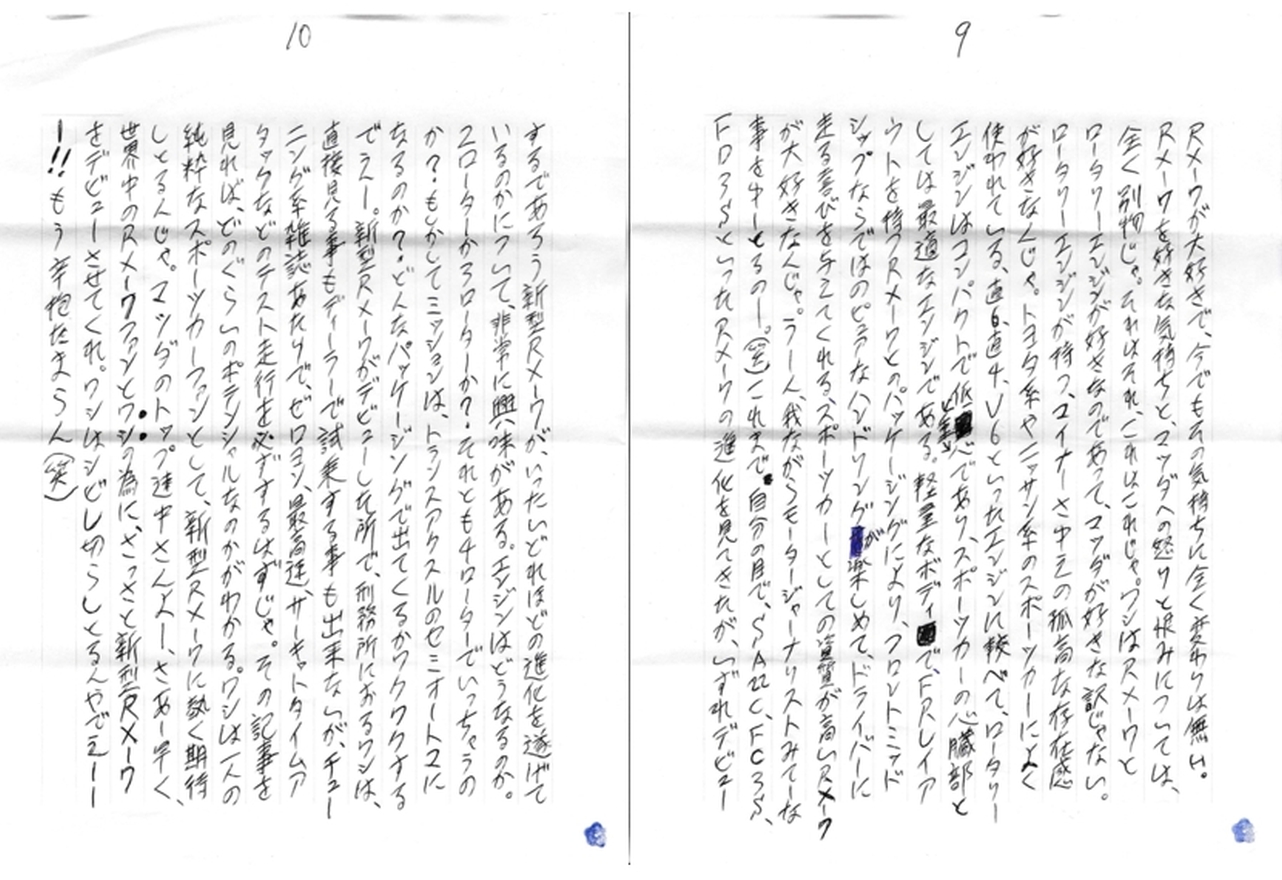 9
RXメーワが大好きで、今でもその気持ちに全く変わりは無い。
RXメーワを好きな気持ちと、マツダへの怒りと恨みについては、
全く別物じゃ。それはそれ、これはこれじゃ。ワシはRXメーワと
ロータリーエンジンが好きなのであって、マツダが好きな訳じゃない。
ロータリーエンジンが持つ、ユイナーさ中えの孤高な存在感
が好きなんじゃ。トヨタ系やニッサン系のスポーツカーによく
使われている、直6、直4、V6といったエンジンに較べて、ロータリー
エンジンはコンパクトで低重心であり、スポーツカーの心臓部と
しては最適なエンジンである。軽量なボディで、FRレイア
ウトを持つRXメーワとのパッケージングにより、フロントミッド
シップならではのピュアなハンドリングが楽しめてドライバーに
走る喜びを与えてくれる、スポーツカーとしての資質が高いRXメーワ
が大好きなんじゃ。うーん、我ながらモータージャーナリストみてーな
事を中ーとるのー。(笑)これまで自分の目で、SA22C、FC3S、
FD3SといったRXメーワの進化を見てきたが、いずれデビュー
10
するであろう新型RXメーワが、いったいどれほどの進化を遂げて
いるのかについて、非常に興味がある。エンジンはどうなるのか。
2ローターか3ローターか?それとも4ローターでいっちゃうの
か?もしかしてミッションは、トランスアクスルのセミオートマに
なるのか?どんなパッケージングで出てくるかワクワクする
でぇー。新型RXメーワがデビューした所で、刑務所におるワシは、
直接見る事もディーラーで試乗する事も出来ないが、チュー
ニング系雑誌あたりで、ゼロヨン、最高速、サーキットタイムア
タックなどのテスト走行を必ずするはずじゃ。その記事を
見れば、どのぐらいのポテンシャルなのかがわかる。ワシは一人の
純粋なスポーツカーファンとして、新型RXメーワに熱く期待
しとるんじゃ。マツダのトップ連中さんよー、さあー早く、
世界中のRXメーワファンとワシの為に、さっさと新型RXメーワ
をデビューさせてくれ。ワシはシビレ切らしとるんやでえーー
ー!!もう辛抱たまらん(笑)